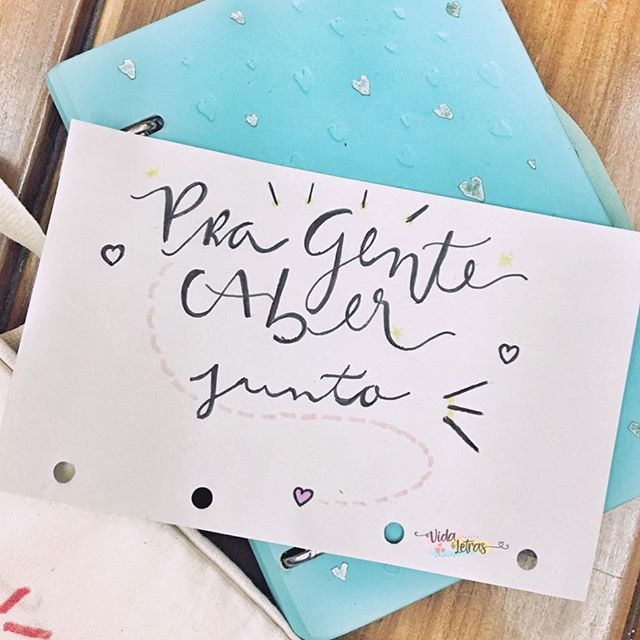 Pra Gente
Caber
junto
Vida
& Letras